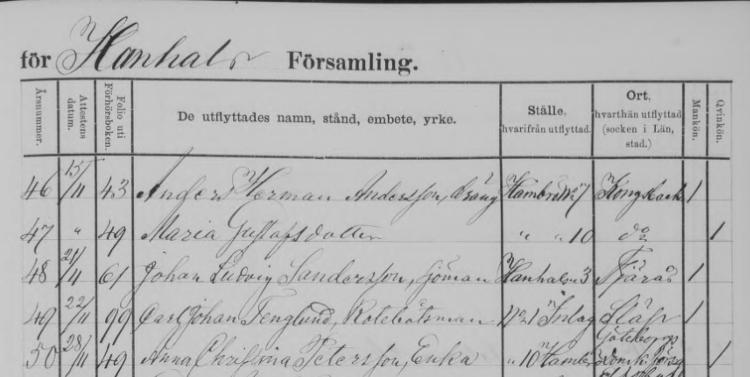 för Hanhals Församling.
Årsnummer. Attestens datum. Folio uti Förhörsboken. De utflyttades namn, stånd, embete, yrke. Ställe, hvarifrån utflyttad. Ort, hvarthän utflyttad (socken i Län, stad.) Mankön. Qvinkön.
46 15/11 43 Anders Herman Andersson, dräng Hambrö No 7 Kongsbacka 1
47 " 49 Maria Gustafsdotter " " 10 do 1
48 21/11 61 Johan Ludvig Sandersson, sjöman Hanhals 3 Fjärås 1
49 22/11 99 Carl Johan Tenglund, Rotebåtsman No 1 Inlag Släp 1
50 28/11 49 Anna Christina Petersson, Enka " 10 Göteborgs 1